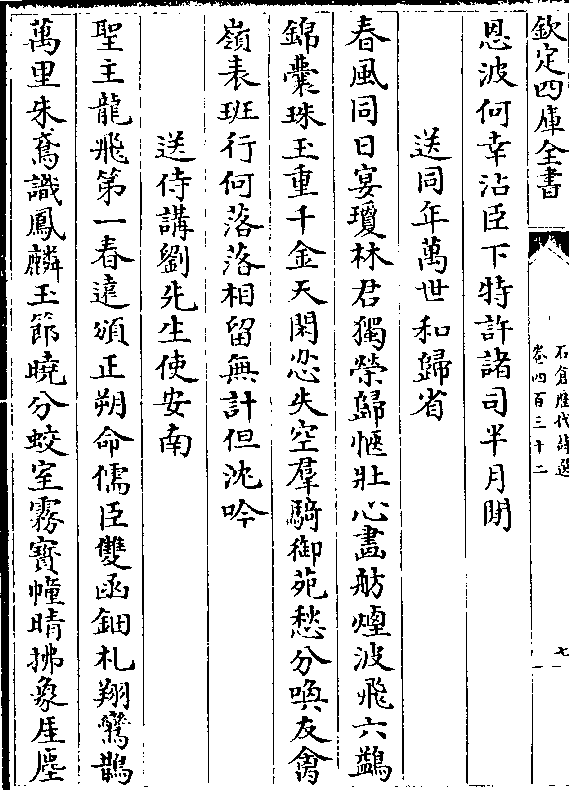 欽定四庫全書
石倉歷代詩選
卷四百三十二
七
恩波何幸沾臣下特許諸司半月閒
送同年萬世和歸省
春風同日宴瓊林君獨榮歸愜壯心畫舫煙波飛六鷁
錦囊珠玉重千金天閑恣失空羣騎御苑愁分喚友禽
嶺表班行何落落相留無計但沈吟
送侍講劉先生使安南
聖主龍飛第一春遠頒正朔命儒臣雙函鈿札翔鸞鵲
萬里朱鳶識鳳麟玉節曉分蛟室霧寳幢晴拂象厓塵